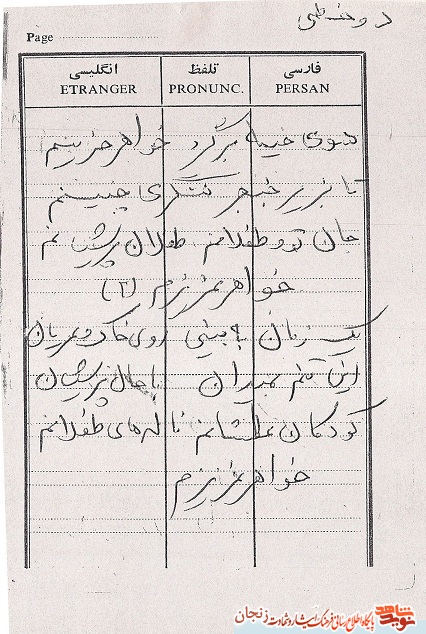 Page
انگلیسی تلفظ فارسی
ETRANGER PRONUNC. PERSAN
سوی خیمه برگرد خواهر حزینم
تا بزیر خنجر ننگری چنینم
جان تو و طفلانم طفلان پریشانم
خواهر عزیزم (۲)
یک زمان به بینی روی خاک و عریان
این تنم بمیدان با حال پریشان
کودکان عطشانم ناله های طفلانم
خواهر عزیزم
نوید شاهد
پایگاه اطلاع رسانی فرهنگ ایثار و شهادت زنجان